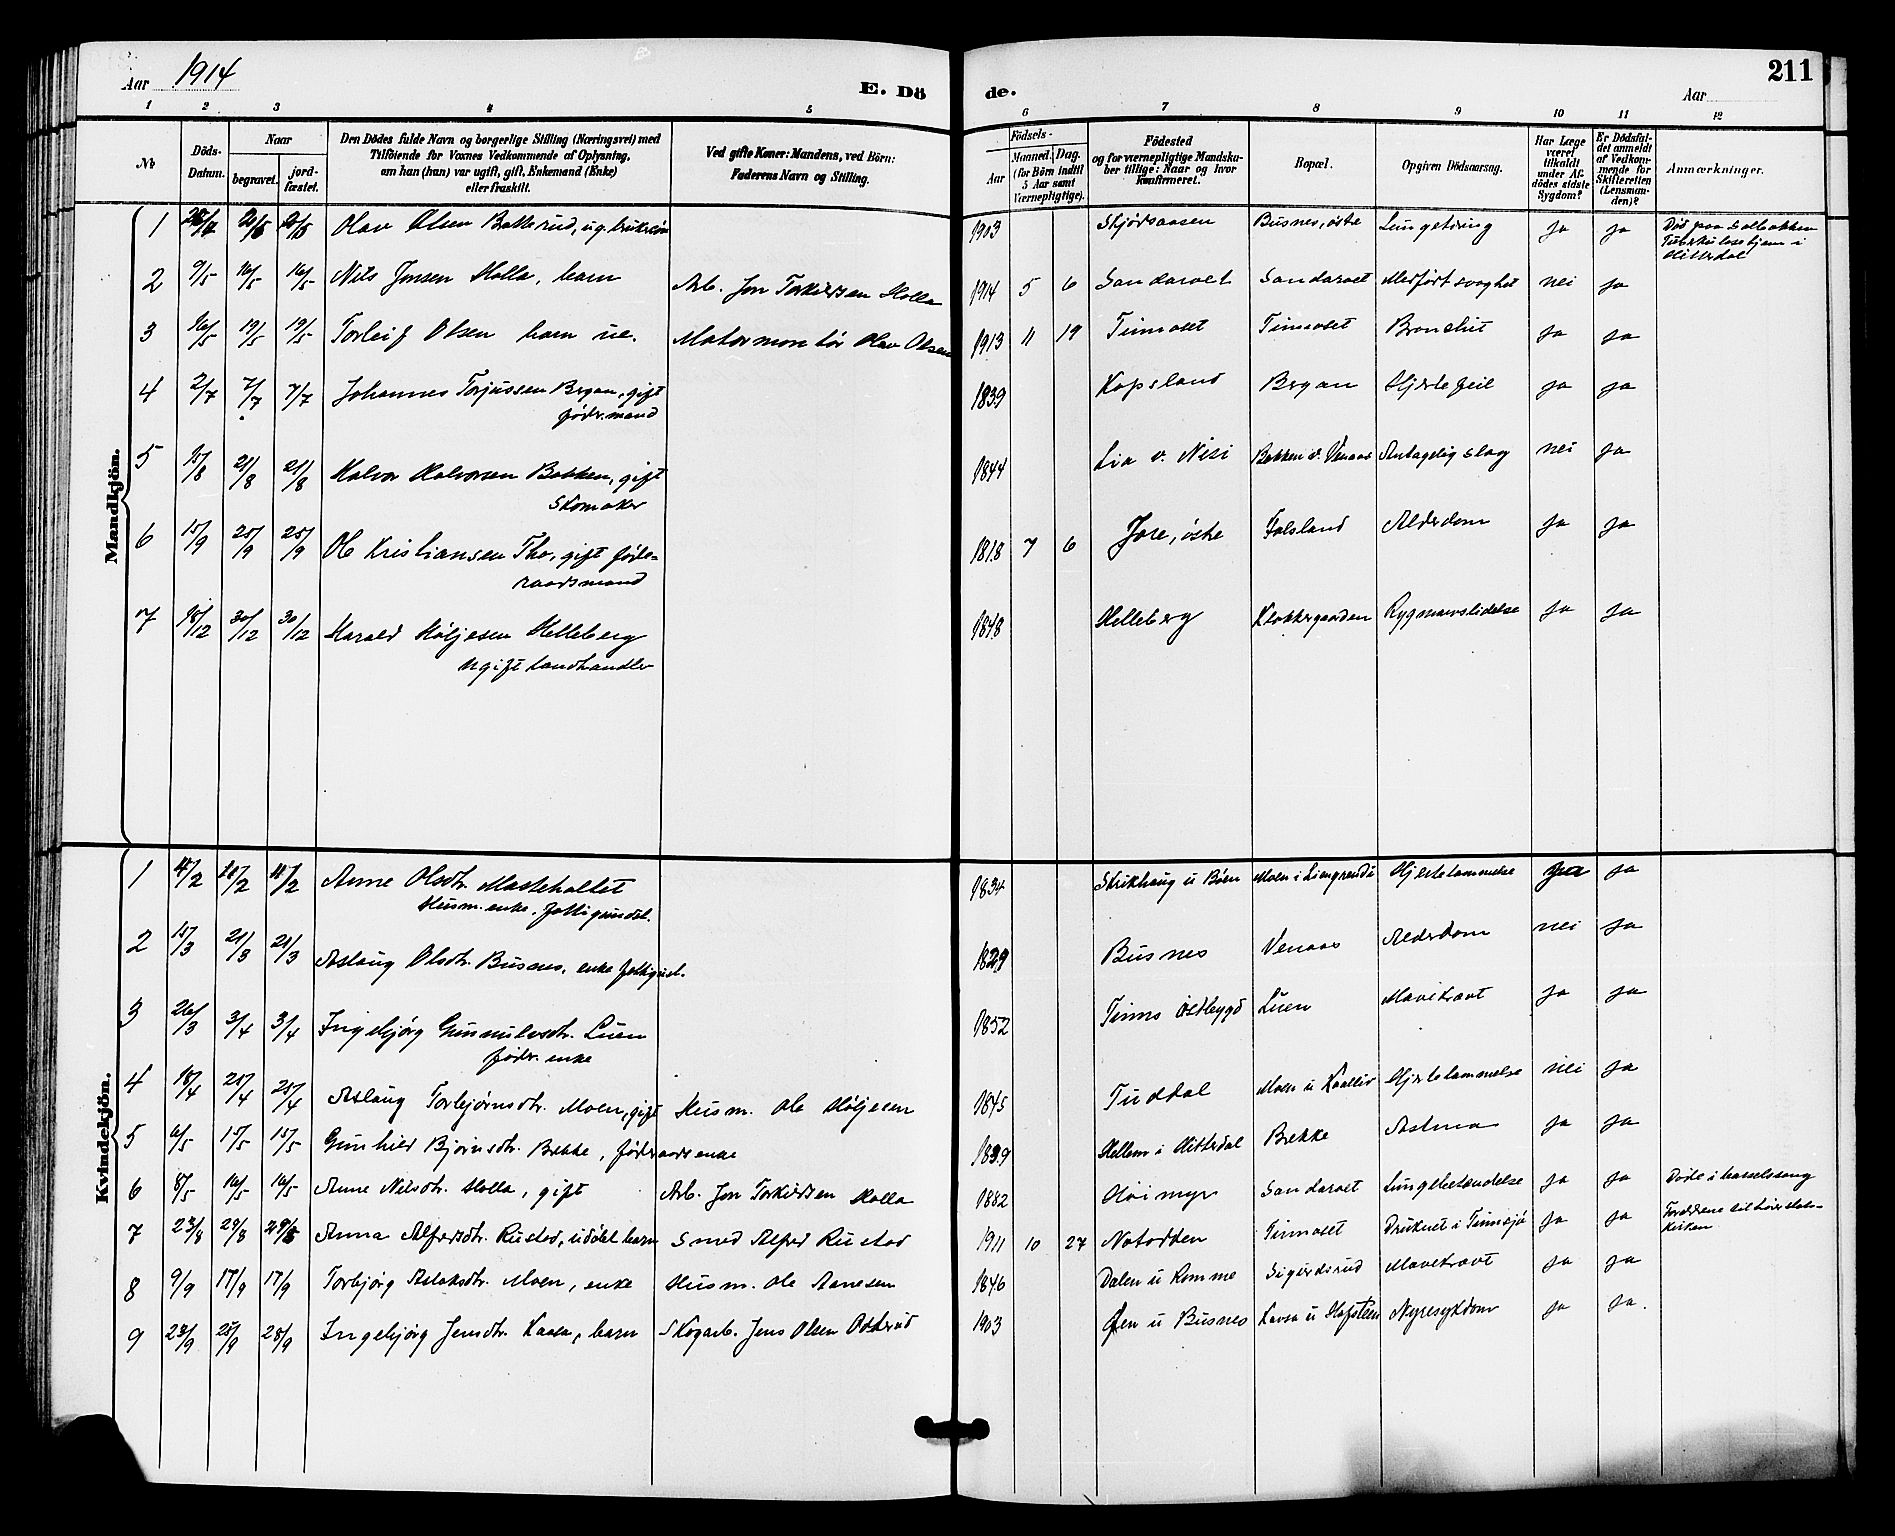 Aar 1914
E. Dö
de.
Aar
211
1 2 3 4 5 6 7 8 9 10 11 12
No
Döds-Datum.
Naar
begravet.
jord-fæstet.
Den Dödes fulde Navn og borgerlige Stilling (Næringsvei) med
Tilföiende for Voxnes Vedkommende af Oplysning,
om han (hun) var ugift, gift, Enkemand (Enke)
eller fraskilt.
Ved gifte Koner: Mandens, ved Börn:
Faderens Navn og Stilling.
Födsels-
Aar
Maaned. Dag.
(for Börn indtil
5 Aar samt
Værnepligtige).
Födested
og for værnepligtige Mandska-
ber tillige: Naar og hvor
Konfirmeret.
Bopæl.
Opgiven Dödsaarsag.
Har Læge
været
tilkaldt
under Af-
dödes sidste
Sygdom?
Er Dödsfal-
det anmeldt
af Vedkom-
mende for
Skifteretten
(Lensman-
den)?
Anmærkninger.
Mandkjön.
1 Olav Olsen Bakkerud, ug. 1903 Busnes, östre Lungetæring ja ja Död paa
Tuberkulosehjem i
Hitterdal
2 9/5 16/5 16/5 Nils Jonsen Holla, barn Arb. Jon Torkildsen Holla 1914 5 6 Sandaroet Sandaroet Medfört svaghet nei ja
3 16/5 19/5 19/5 Torleif Olsen barn ue. Motormontör Olav Olsen 1913 11 19 Tinnoset Tinnoset Bronchit ja ja
4 2/7 7/7 7/7 Johannes Torjussen Bergan, gift
födr.mand 1839 Kopsland Bergan Hjertefeil ja ja
5 15/8 21/8 21/8 Halvor Halvorsen Bakken, gift
Skomaker 1844 Lia v. Nisi Bakken v. Venaas Antagelig slag nei ja
6 15/9 25/9 25/9 Ole Kristiansen Tho, gift föde-
raadsmand 1818 7 6 Jore, östre Folsland Alderdom ja ja
7 18/12 30/12 30/12 Harald Höljesen Helleberg
ugift Landhandler 1848 Helleberg Klokkergaarden Rygmarvslidelse ja ja
Kvindekjön.
1 Anne Olsdtr. Masteholtet
Husm.enke. 1834 Strikhaug u Böen Moen i Hjertelammelse ja
2 15/3 21/3 21/3 Aslaug Olsdtr. Busnes, enke 1829 Busnes Venaas Alderdom nei ja
3 26/3 3/4 3/4 Ingebjörg Gunnulvsdtr. Luen
födr. enke 1852 Tinns Östbygd Luen Mavekræft ja ja
4 18/4 25/4 25/4 Aslaug Torbjörnsdtr. Moen, gift Husm. Ole Höljesen 1845 Tuddal Moen u Kaaliv Hjertelammelse nei ja
5 6/5 15/5 15/5 Gunhild Björnsdtr. Bekke, föderaadsenke 1839 Hellem i Hitterdal Bekke Astma ja ja
6 8/5 16/5 16/5 Anne Nilsdtr. Holla, gift Arb. Jon Torkildsen Holla 1882 Höimyr Sandaroet Lungebetændelse ja ja Döde i barselseng
7 23/8 29/8 29/8 Anna Alfredsdtr. Rustad, udöbt barn Smed Alfred Rustad 1911 10 27 Notodden Tinnoset Druknet i Tinnsjö ja ja Forældrene
8 9/9 17/9 17/9 Torbjörg Aslaksdtr. Moen, enke Husm. Ole Aanesen 1846 Dalen u Romme Sigurdsrud Mavekræft ja ja
9 23/9 28/9 28/9 Ingebjörg Jensdtr. Kaasa, barn Skogarb. Jens Olsen Osterud 1903 u Busnes u Hofsteen Nyresykdom ja ja.